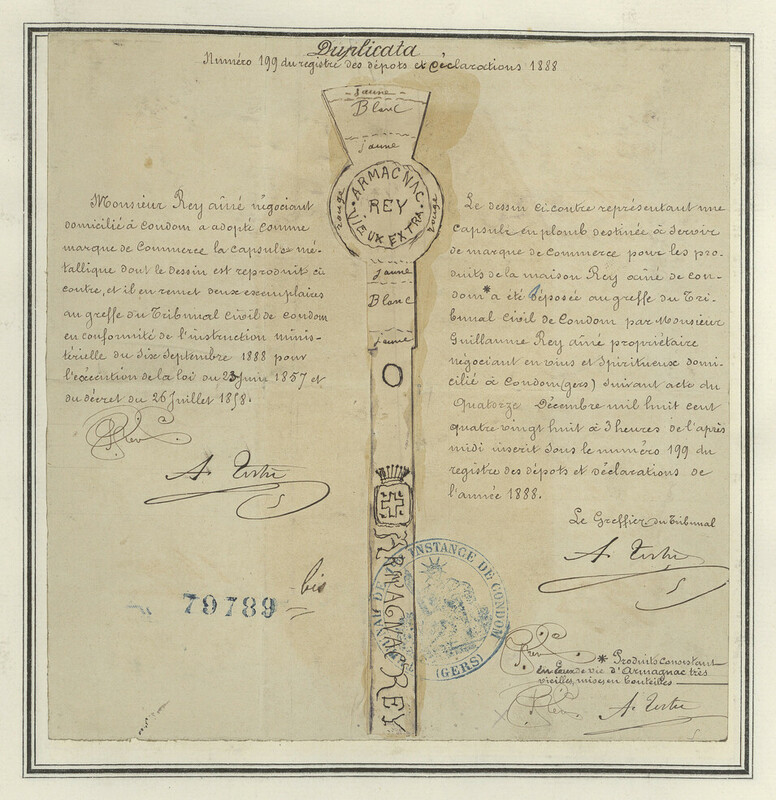 Duplicata
Numéro 199 du registre des dépots et déclarations 1888
Monsieur Rey aîné négociant
domicilié à Condom a adopté comme
marque de Commerce la capsule mé-
tallique dont le dessin est reproduit ci
contre, et il en remet deux exemplaires
au greffe du Tribunal Civil de Condom
en conformité de l'instruction minis-
térielle du six Septembre 1888 pour
l'exécution de la loi du 23 juin 1857 et
du décret du 26 Juillet 1858.
A. Testé
79789 bis
jaune
Blanc
jaune
rouge
ARMAGNAC
REY
VIEUX EXTRA
rouge
jaune
Blanc
jaune
ARMAGNAC REY
INSTANCE DE CONDOM
(GERS)
Le dessin ci contre représentant une
capsule en plomb destinée à servir
de marque de Commerce pour les pro-
duits de la maison Rey aîné de Con-
dom* a été déposée au greffe du Tri-
bunal Civil de Condom par Monsieur
Guillaume Rey aîné propriétaire
négociant en vins et spiritueux domi-
cilié à Condom (gers) suivant acte du
Quatorze Décembre mil huit cent
quatre vingt huit à 3 heures de l'après
midi inscrit sous le numéro 199 du
registre des dépots et déclarations de
l'année 1888.
Le Greffier du Tribunal
A. Testé
* Produits consistant
en Eaux de vie d'Armagnac très
vieilles, mises en bouteilles
A. Testé